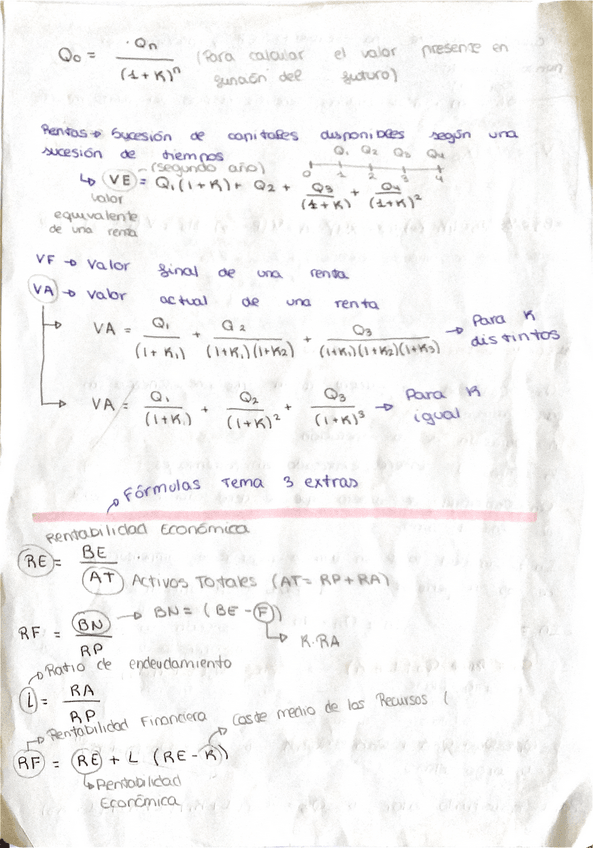 Q₀ = Qn / (1+K)ⁿ (Para calcular el valor presente en
función del futuro)
Rentas → Sucesión de capitales disponibles según una
sucesión de tiempos
Q₁ Q₂ Q₃ Q₄
0 1 2 3 4
(segundo año)
↳ VE = Q₁(1+K) + Q₂ + Q₃/(1+K) + Q₄/(1+K)²
valor
equivalente
de una renta
VF → Valor final de una renta
VA → valor actual de una renta
→ VA = Q₁/(1+K₁) + Q₂/(1+K₁)(1+K₂) + Q₃/(1+K₁)(1+K₂)(1+K₃) → Para K
distintos
→ VA = Q₁/(1+K₁) + Q₂/(1+K)² + Q₃/(1+K)³ → Para K
igual
Fórmulas Tema 3 extras
Rentabilidad Económica
RE = BE / AT Activos Totales (AT = RP + RA)
RF = BN / RP → BN = (BE - F)
↳ K·RA
Ratio de endeudamiento
L = RA / RP
Rentabilidad Financiera Coste medio de los Recursos (
RF = RE + L (RE - K)
↳ Rentabilidad
Económica